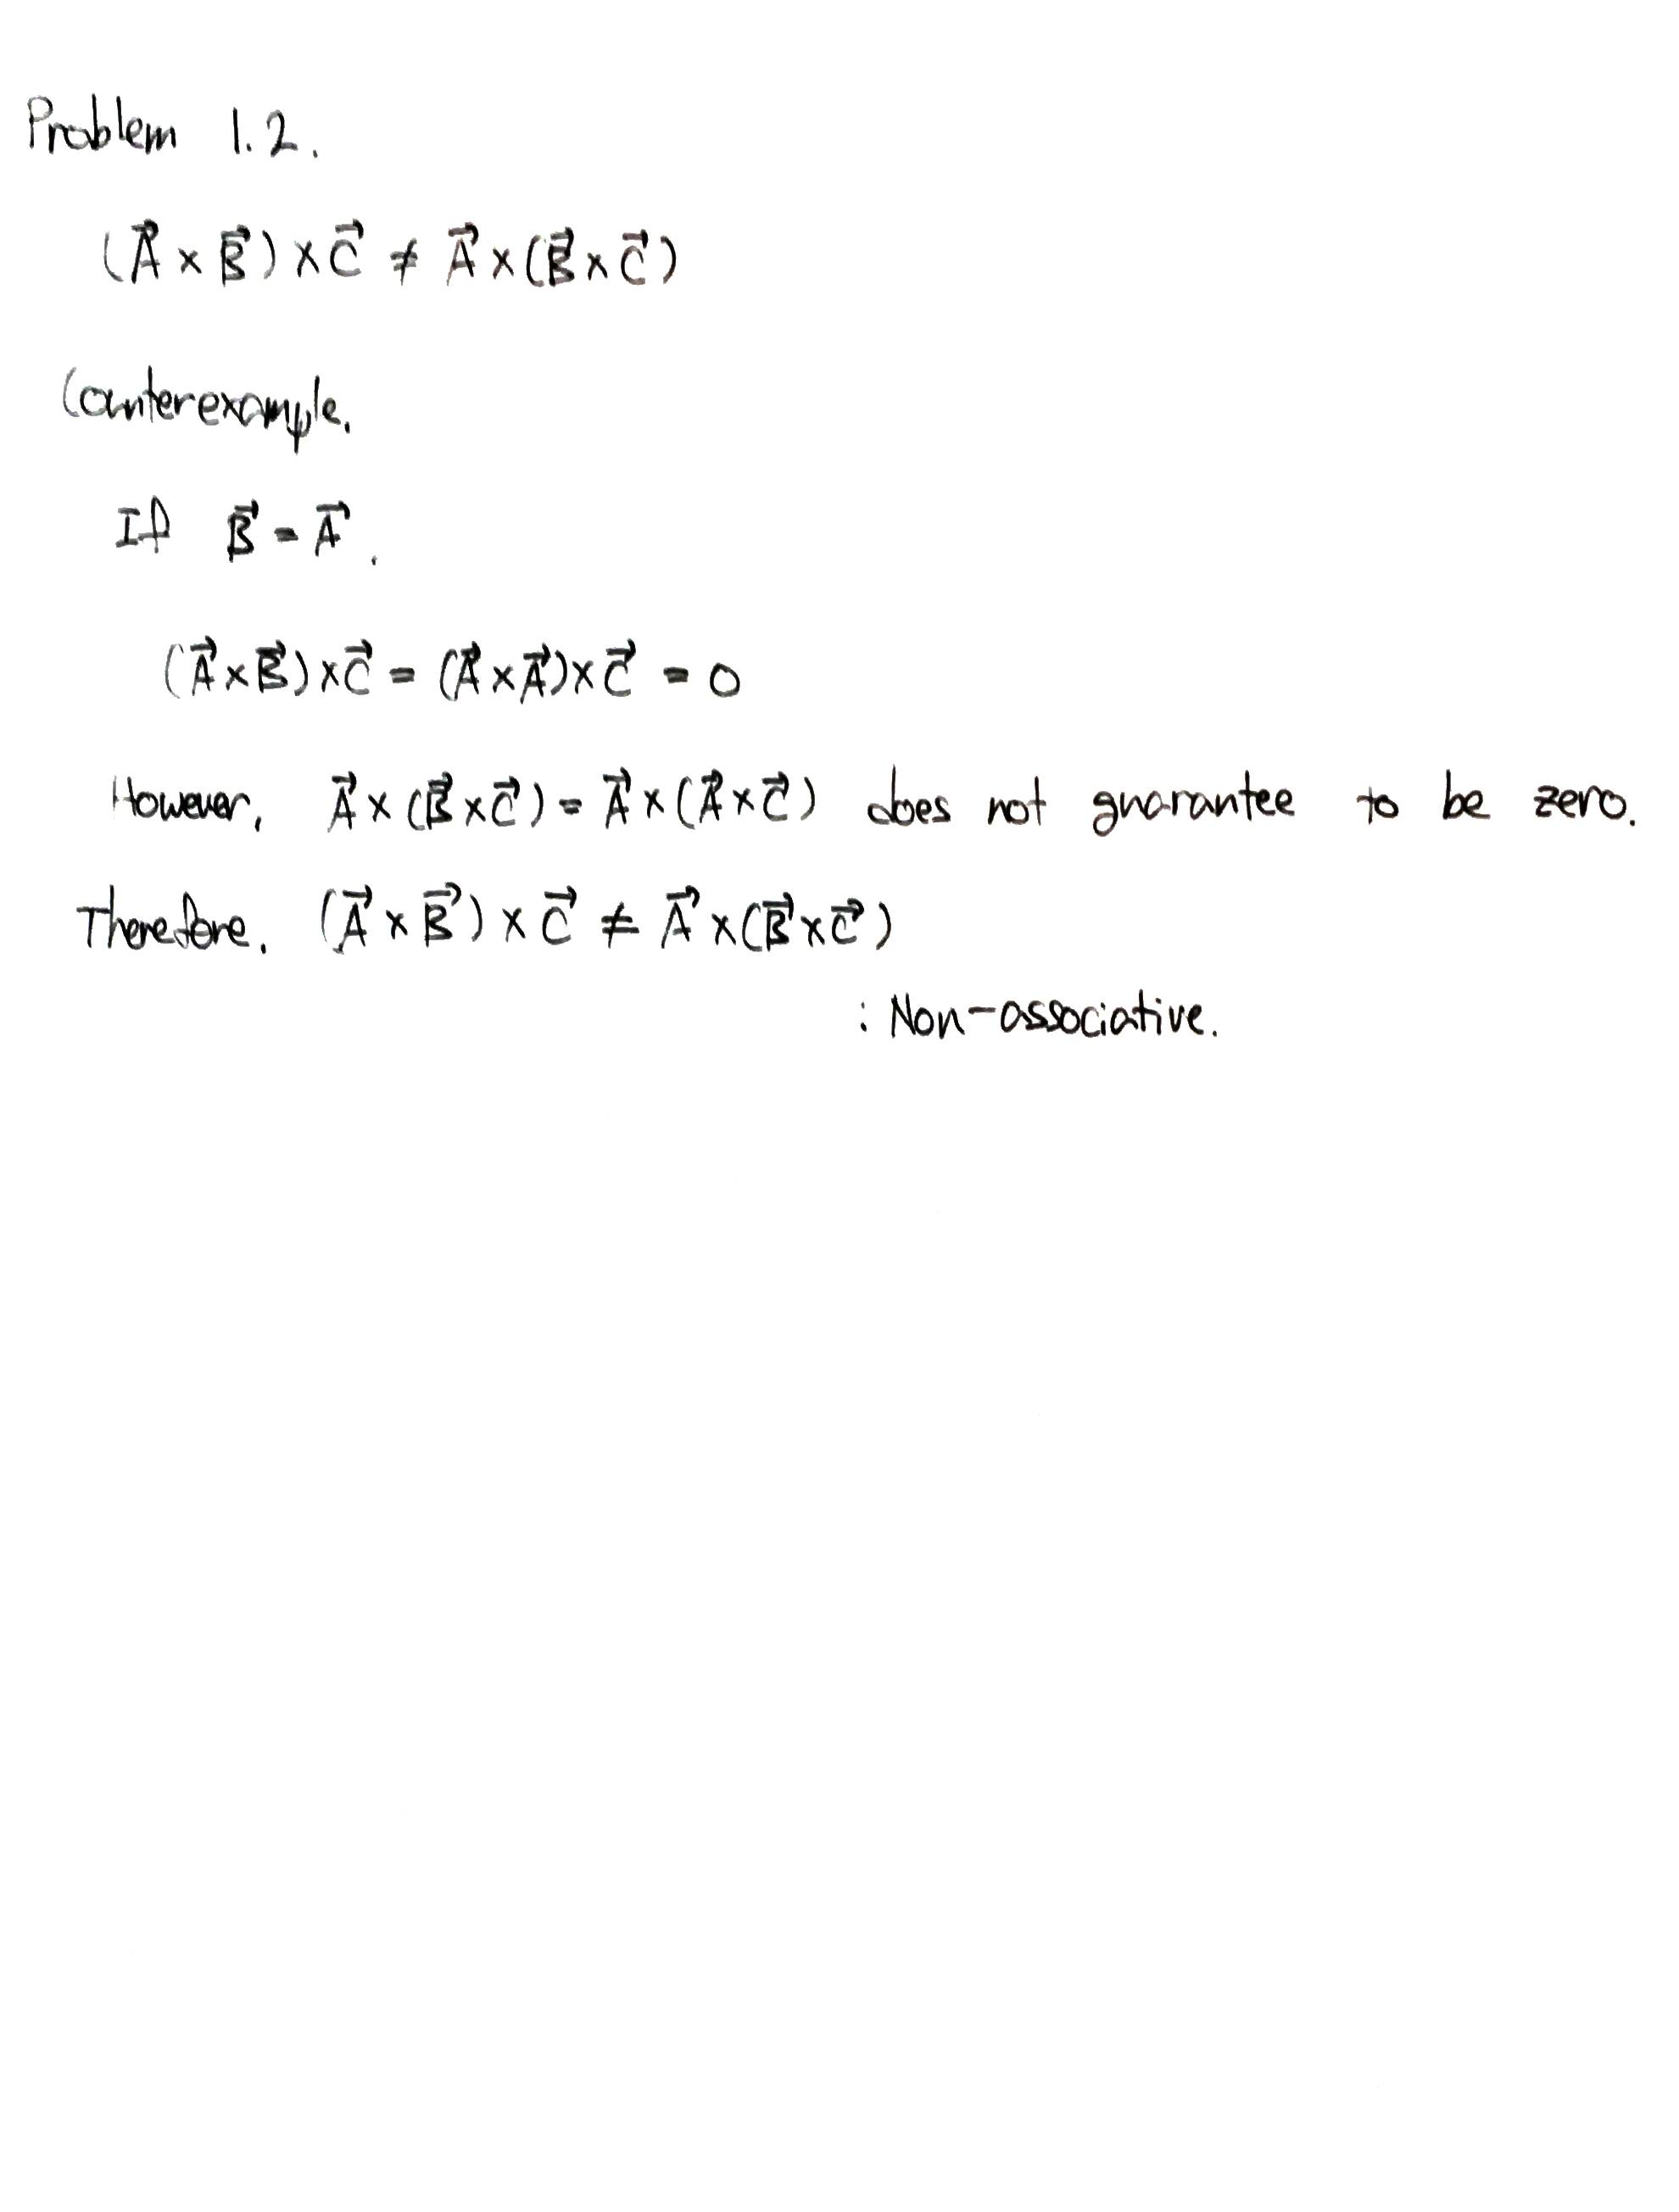 Problem 1.2.
(A⃗ × B⃗) × C⃗ ≠ A⃗ × (B⃗ × C⃗)
Counterexample.
If B⃗ = A⃗.
(A⃗ × B⃗) × C⃗ = (A⃗ × A⃗) × C⃗ = 0
However, A⃗ × (B⃗ × C⃗) = A⃗ × (A⃗ × C⃗) does not guarantee to be zero.
Therefore. (A⃗ × B⃗) × C⃗ ≠ A⃗ × (B⃗ × C⃗)
: Non-associative.